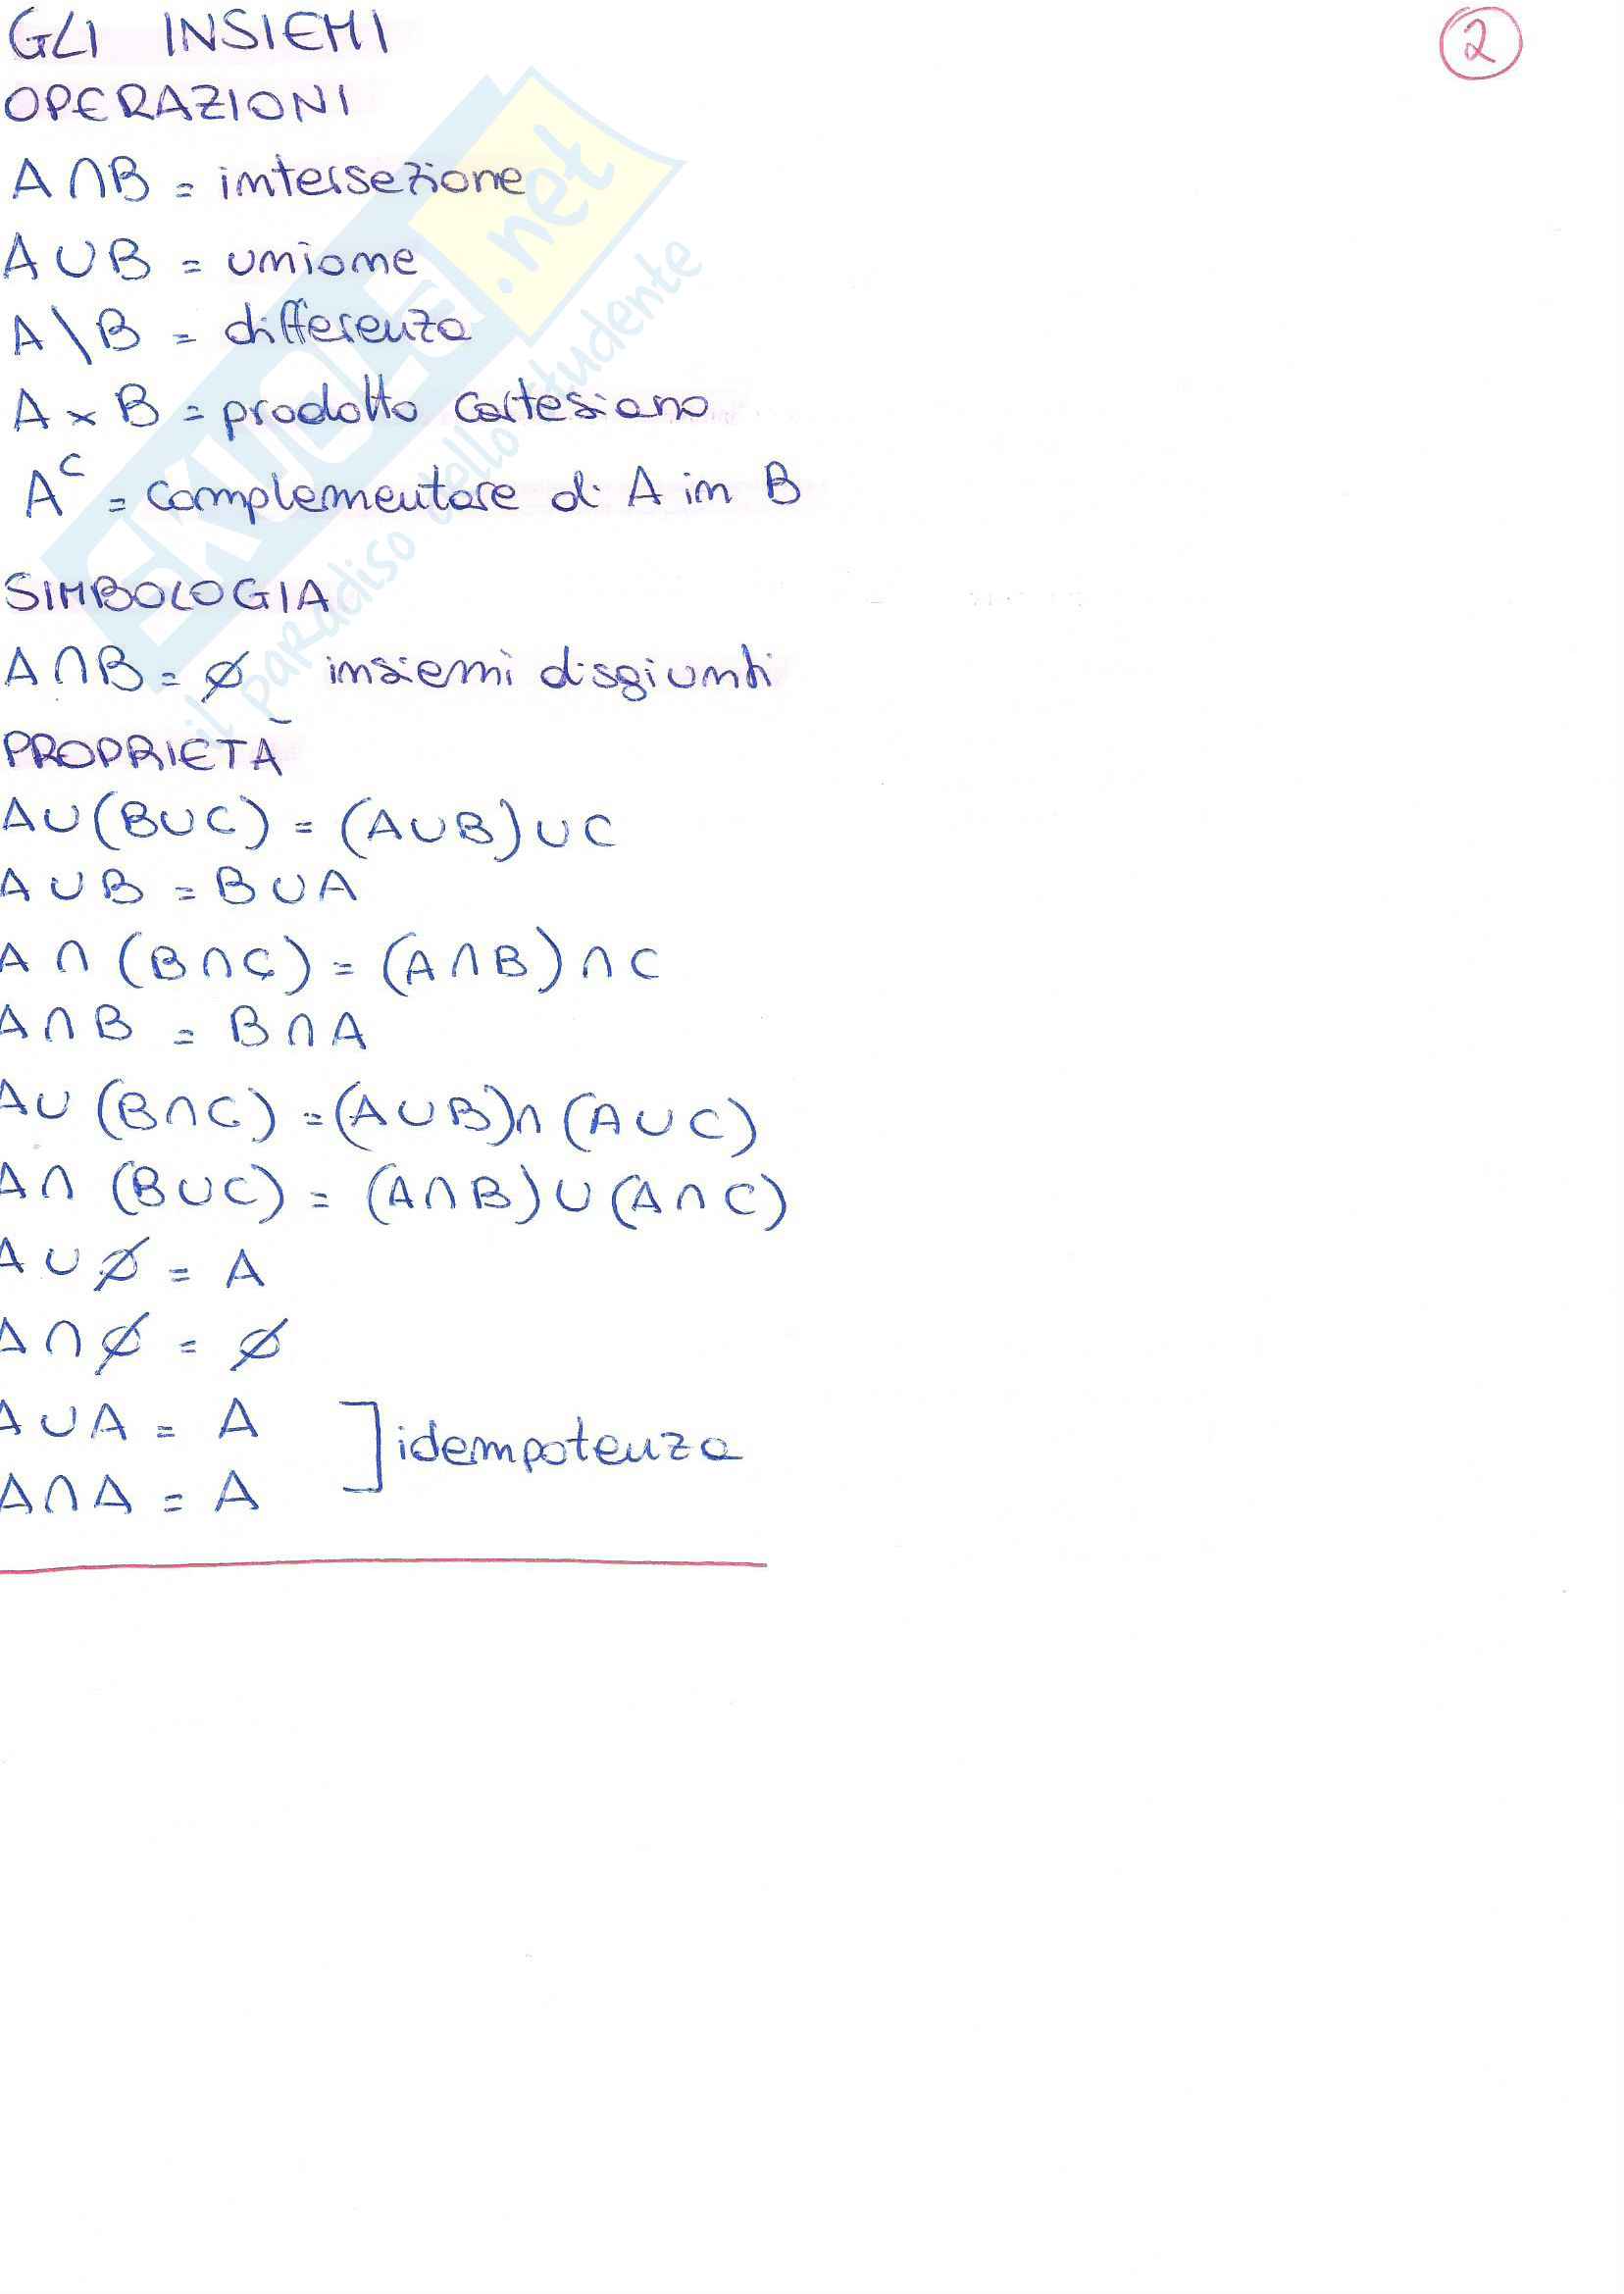 GLI INSIEMI
2
OPERAZIONI
A∩B = intersezione
A∪B = unione
A\B = differenza
A×B = prodotto cartesiano
Aᶜ = complementare di A in B
SIMBOLOGIA
A∩B = ∅ insiemi disgiunti
PROPRIETÀ
A∪(B∪C) = (A∪B)∪C
A∪B = B∪A
A∩(B∩C) = (A∩B)∩C
A∩B = B∩A
A∪(B∩C) = (A∪B)∩(A∪C)
A∩(B∪C) = (A∩B)∪(A∩C)
A∪∅ = A
A∩∅ = ∅
A∪A = A
] idempotenza
A∩A = A
SKUOLA.net
il paradiso dello studente